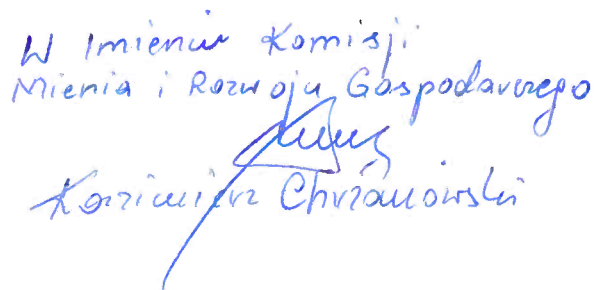 W Imieniu Komisji
Mienia i Rozwoju Gospodarczego
Kazimierz Chrzanowski